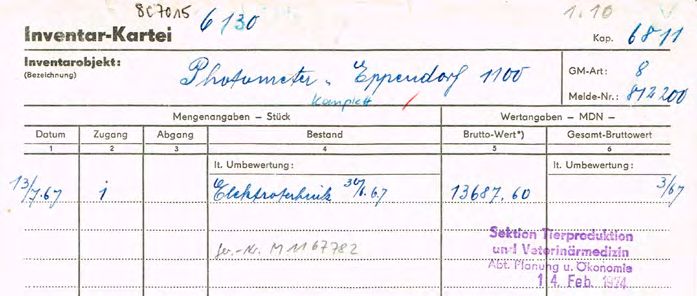 8C7015 6130 1.10
Inventar-Kartei Kap. 6811
Inventarobjekt: Photometer „ Eppendorf 1100 GM-Art: 8
(Bezeichnung) komplett Melde-Nr.: 812200
Mengenangaben – Stück Wertangaben – MDN –
Datum Zugang Abgang Bestand Brutto-Wert*) Gesamt-Bruttowert
1 2 3 4 5 6
lt. Umbewertung: lt. Umbewertung:
13/7.67 1 Elektrotechnik 30/6.67 13687.60 3/67
Ser.-Nr. M1167782
Sektion Tierproduktion
und Veterinärmedizin
Abt. Planung u. Ökonomie
14. Feb. 1974